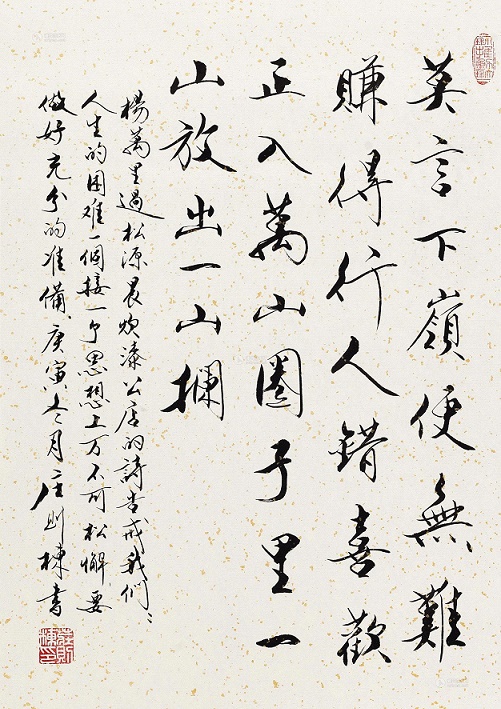 莫言下嶺便無難
賺得行人錯喜歡
正入萬山圈子里一
山放出一山攔
楊萬里過松源晨炊漆公店的詩告戒我們、
人生的困难一個接一个思想上万不可松懈要
做好充分的准備、庚寅冬月庄则棟書
莊則棟印